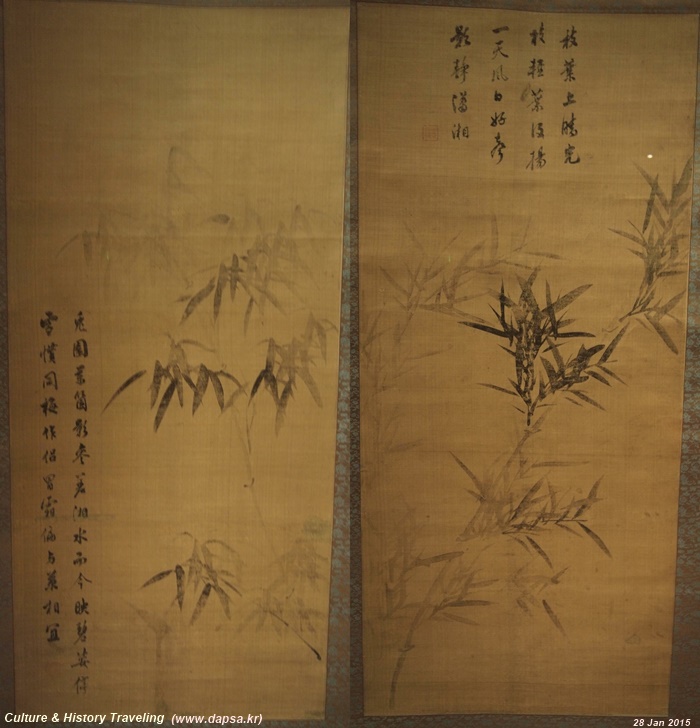 枝葉上晴光
枝輕葉復揚
一天風日好
影靜瀟湘
兎園萬箇影參差湘水而今映碧姿伴
雪慣同梅作侶冒霜偏与菊相宜
Culture & History Traveling (www.dapsa.kr)
28 Jan 2015